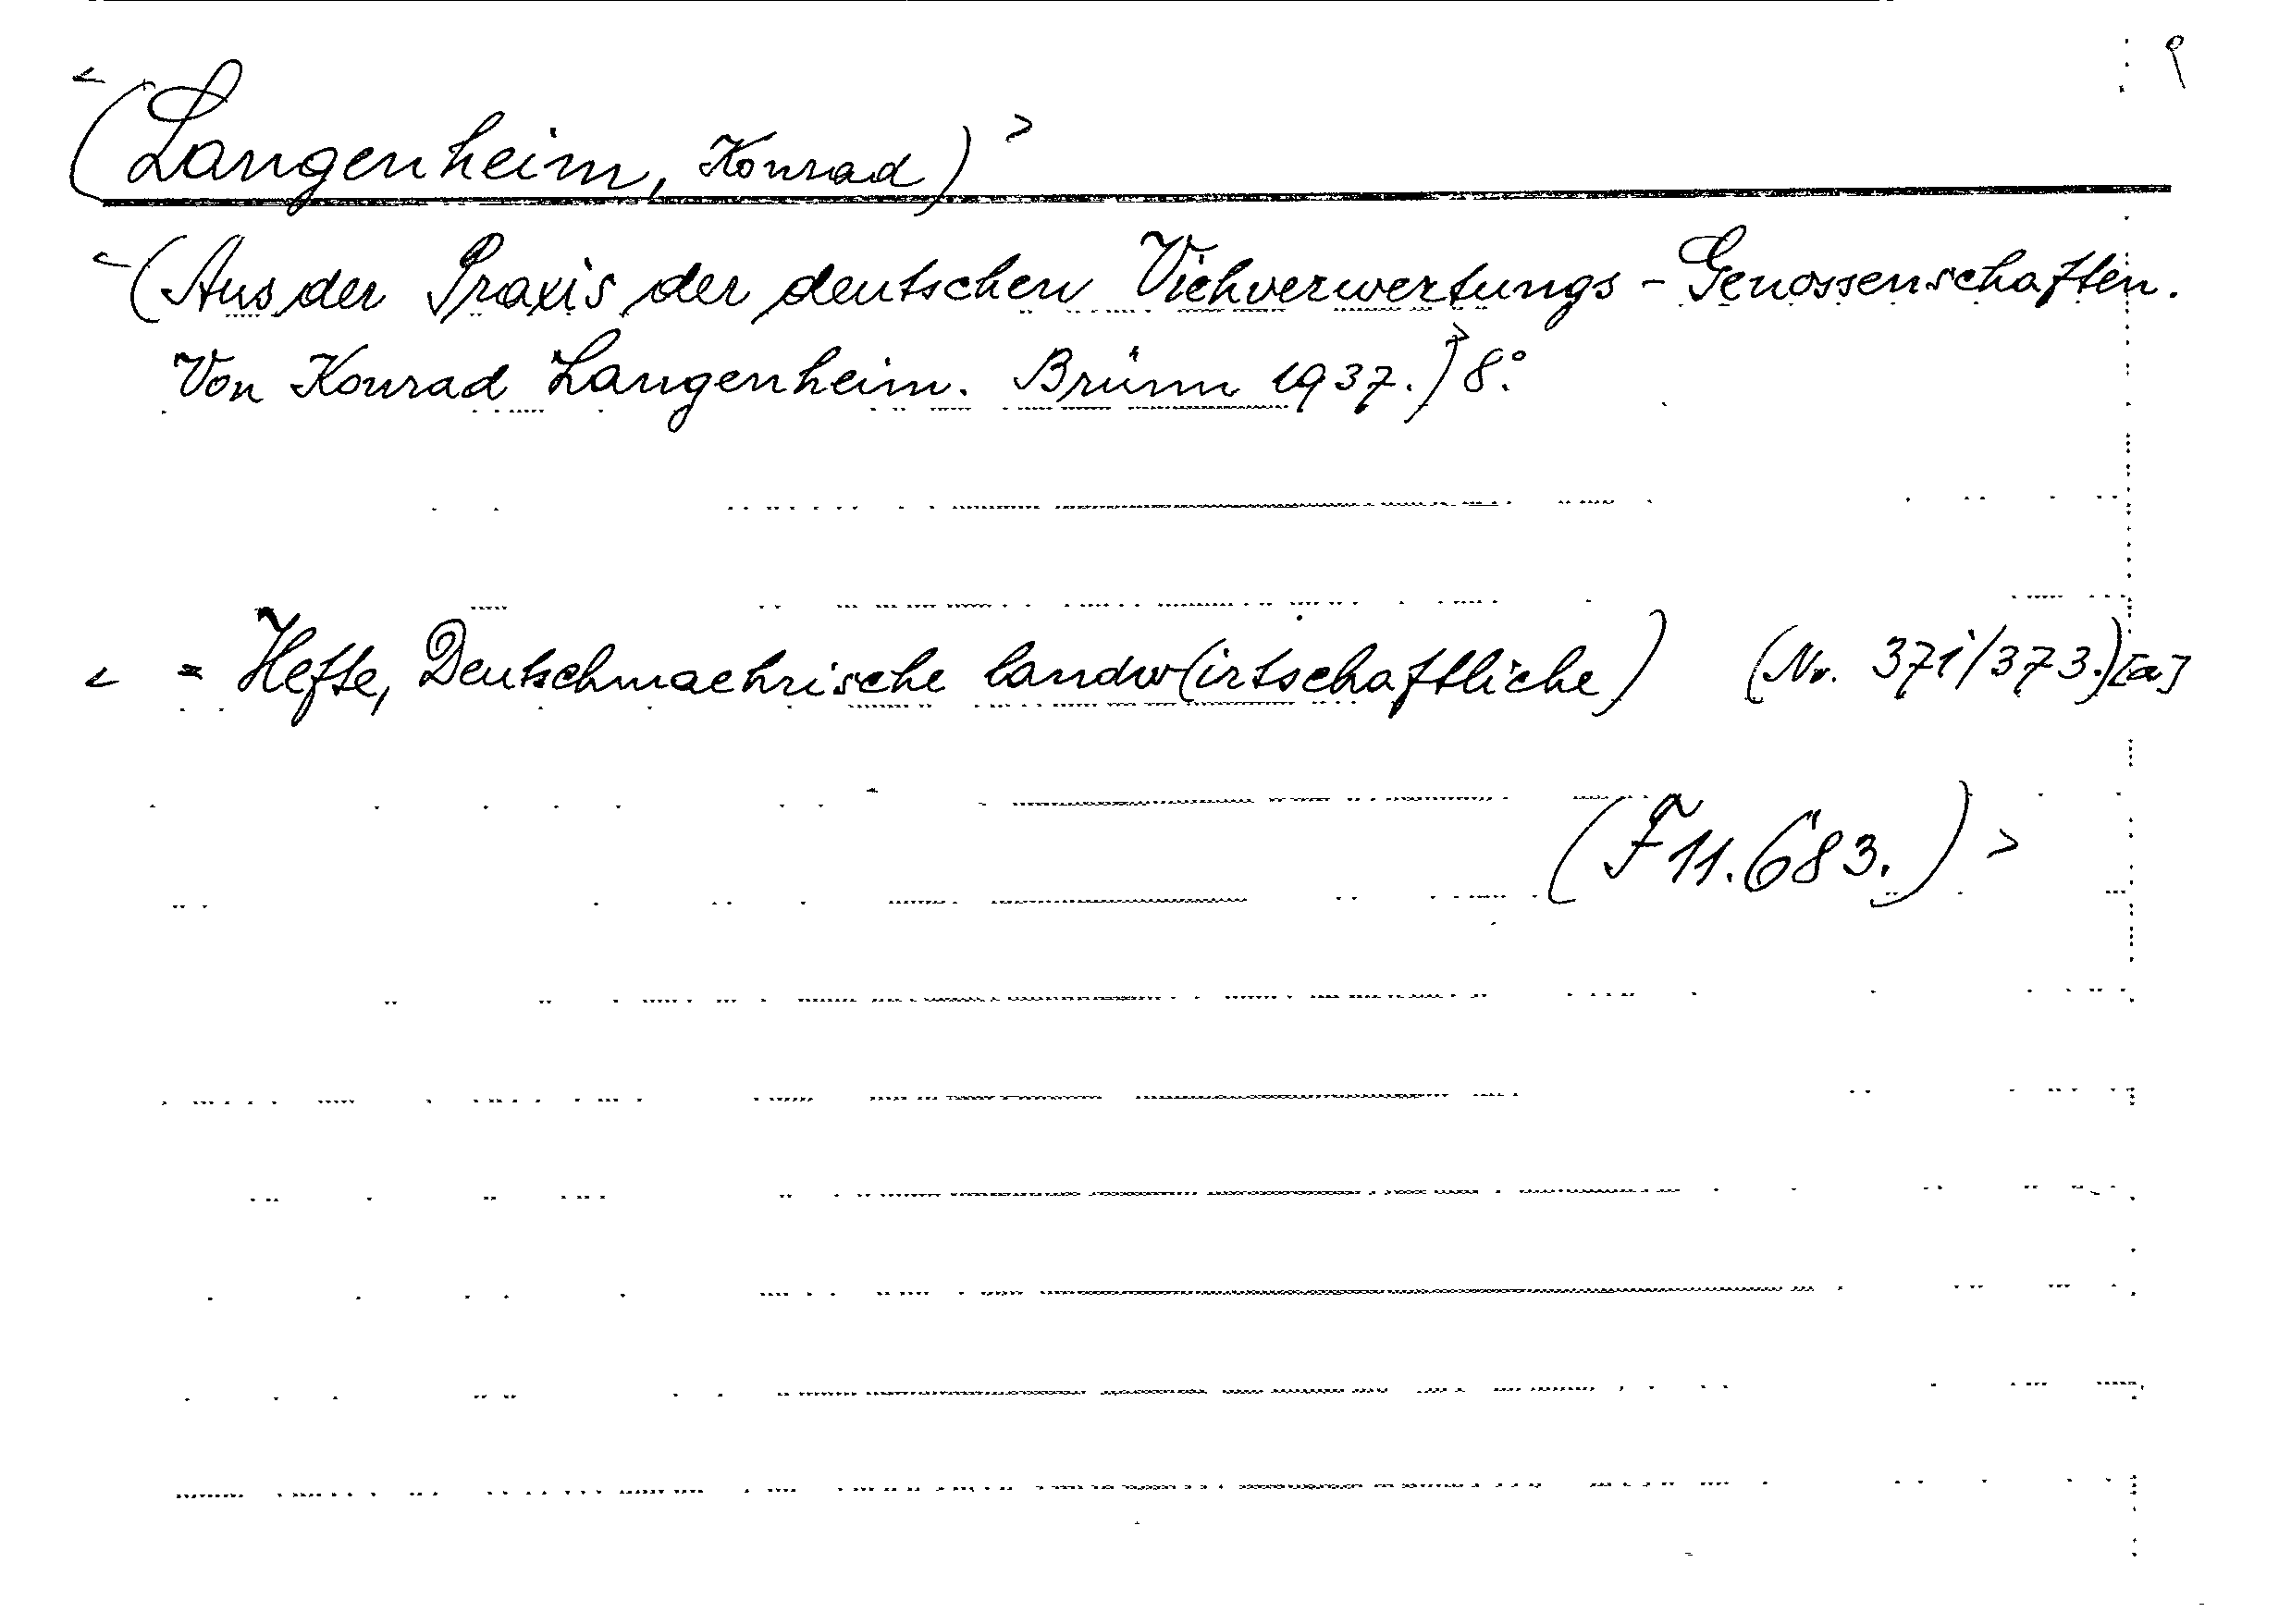 <(Langenheim, Konrad)>
<(Aus der Praxis der deutschen Viehverwertungs-Genossenschaften.
Von Konrad Langenheim. Brünn 1937.)> 8°.
< = Hefte, Deutschmaehrische landw(irtschaftliche) (Nr. 371/373.)[a]
(F 11.683.)>